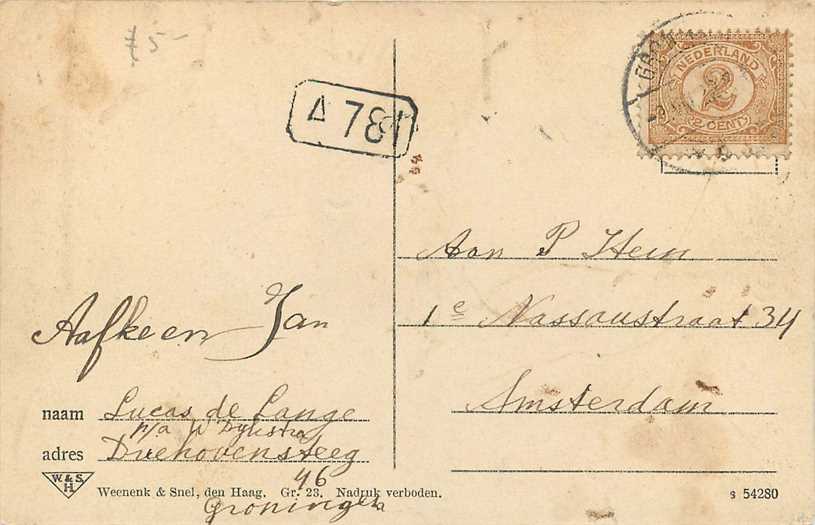 £5-
A 781
NEDERLAND
2
2 CENT
Aan P Hein
1e Nassaustraat 34
Amsterdam
Aafke en Jan
naam Lucas de Lange
p/a W Dijkstra
adres Driehovensteeg
46
Groningen
W.&S.
H.
Weenenk & Snel, den Haag. Gr. 23. Nadruk verboden.
s 54280